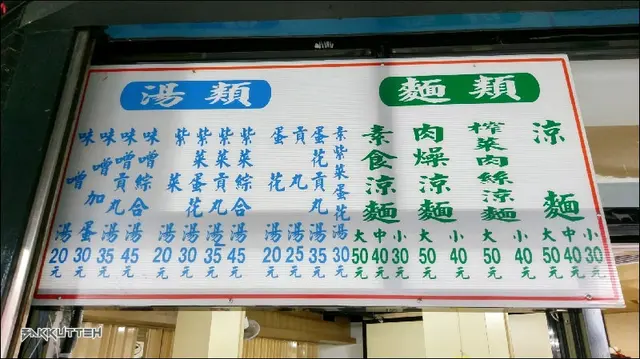 麵類
涼麵 大50元 中40元 小30元
榨菜肉絲涼麵 大50元 小40元
肉燥涼麵 大50元 小40元
素食涼麵 大50元 中40元 小30元
湯類
素紫菜蛋花湯 30元
蛋花貢丸湯 35元
貢丸湯 25元
蛋花湯 20元
紫菜綜合湯 45元
紫菜貢丸湯 35元
紫菜蛋花湯 30元
紫菜湯 20元
味噌綜合湯 45元
味噌貢丸湯 35元
味噌加蛋 30元
味噌湯 20元
PAKKUTTEH